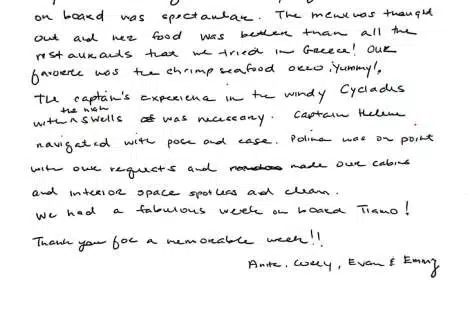 on board was spectacular. The menu was thought
out and her food was better than all the
restaurants that we tried in Greece! Our
favorite was the shrimp seafood orzo. Yummy!
The captain's experience in the windy Cyclades
with the high swells was necessary. Captain Helene
navigated with pose and ease. Polina was on point
with our requests and made our cabins
and interior space spotless and clean.
We had a fabulous week on board Tiamo!
Thank you for a memorable week!!
Anita, Evan & Emmy